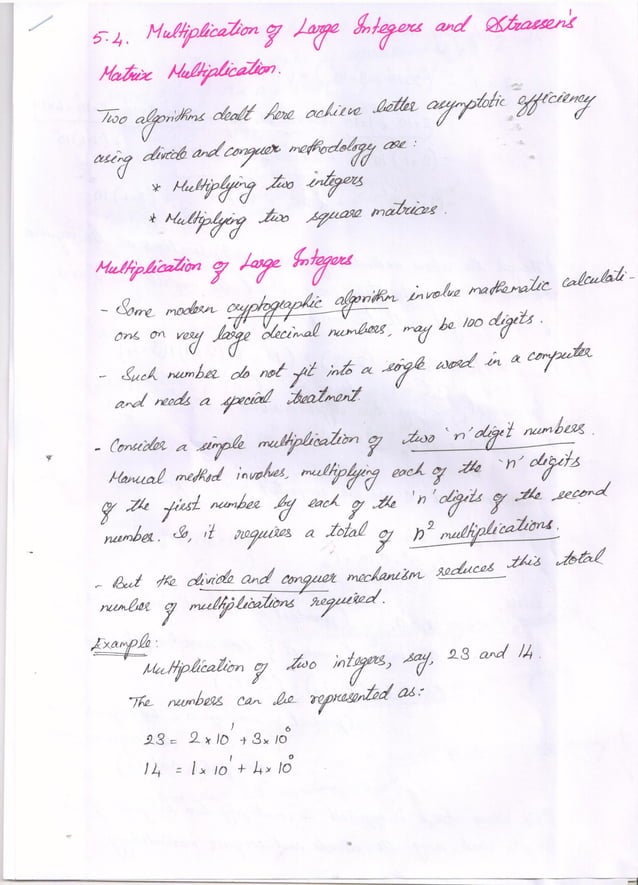 5.4. Multiplication of Large Integers and Strassen's
Matrix Multiplication.
Two algorithms dealt here achieve better asymptotic efficiency
using divide and conquer methodology are :
* Multiplying two integers
* Multiplying two square matrices .
Multiplication of Large Integers
- Some modern cryptographic algorithm involve mathematic calculati-
ons on very large decimal numbers, may be 100 digits .
- Such number do not fit into a single word in a computer
and needs a special treatment.
- Consider a simple multiplication of two 'n' digit numbers .
Manual method involves, multiplying each of the 'n' digits
of the first number by each of the 'n' digits of the second
number. So, it requires a total of n² multiplications.
- But the divide and conquer mechanism reduces this total
number of multiplications required.
Example:
Multiplication of two integers, say, 23 and 14.
The numbers can be represented as:
23 = 2 x 10¹ + 3 x 10⁰
14 = 1 x 10¹ + 4 x 10⁰